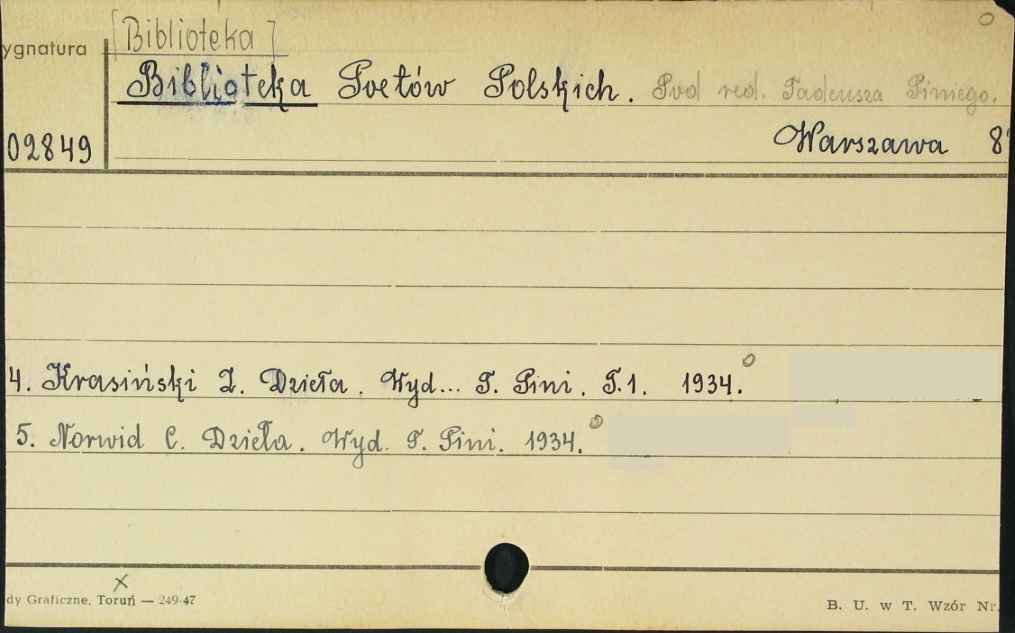 [Biblioteka]
ygnatura
Biblioteka Poetów Polskich. Pod red. Tadeusza Piniego.
02849
Warszawa 8°
4. Krasiński Z. Dzieła. Wyd... T. Pini. T.1. 1934.
5. Norwid C. Dzieła. Wyd. T. Pini. 1934.
dy Graficzne, Toruń — 249-47
B. U. w T. Wzór Nr.